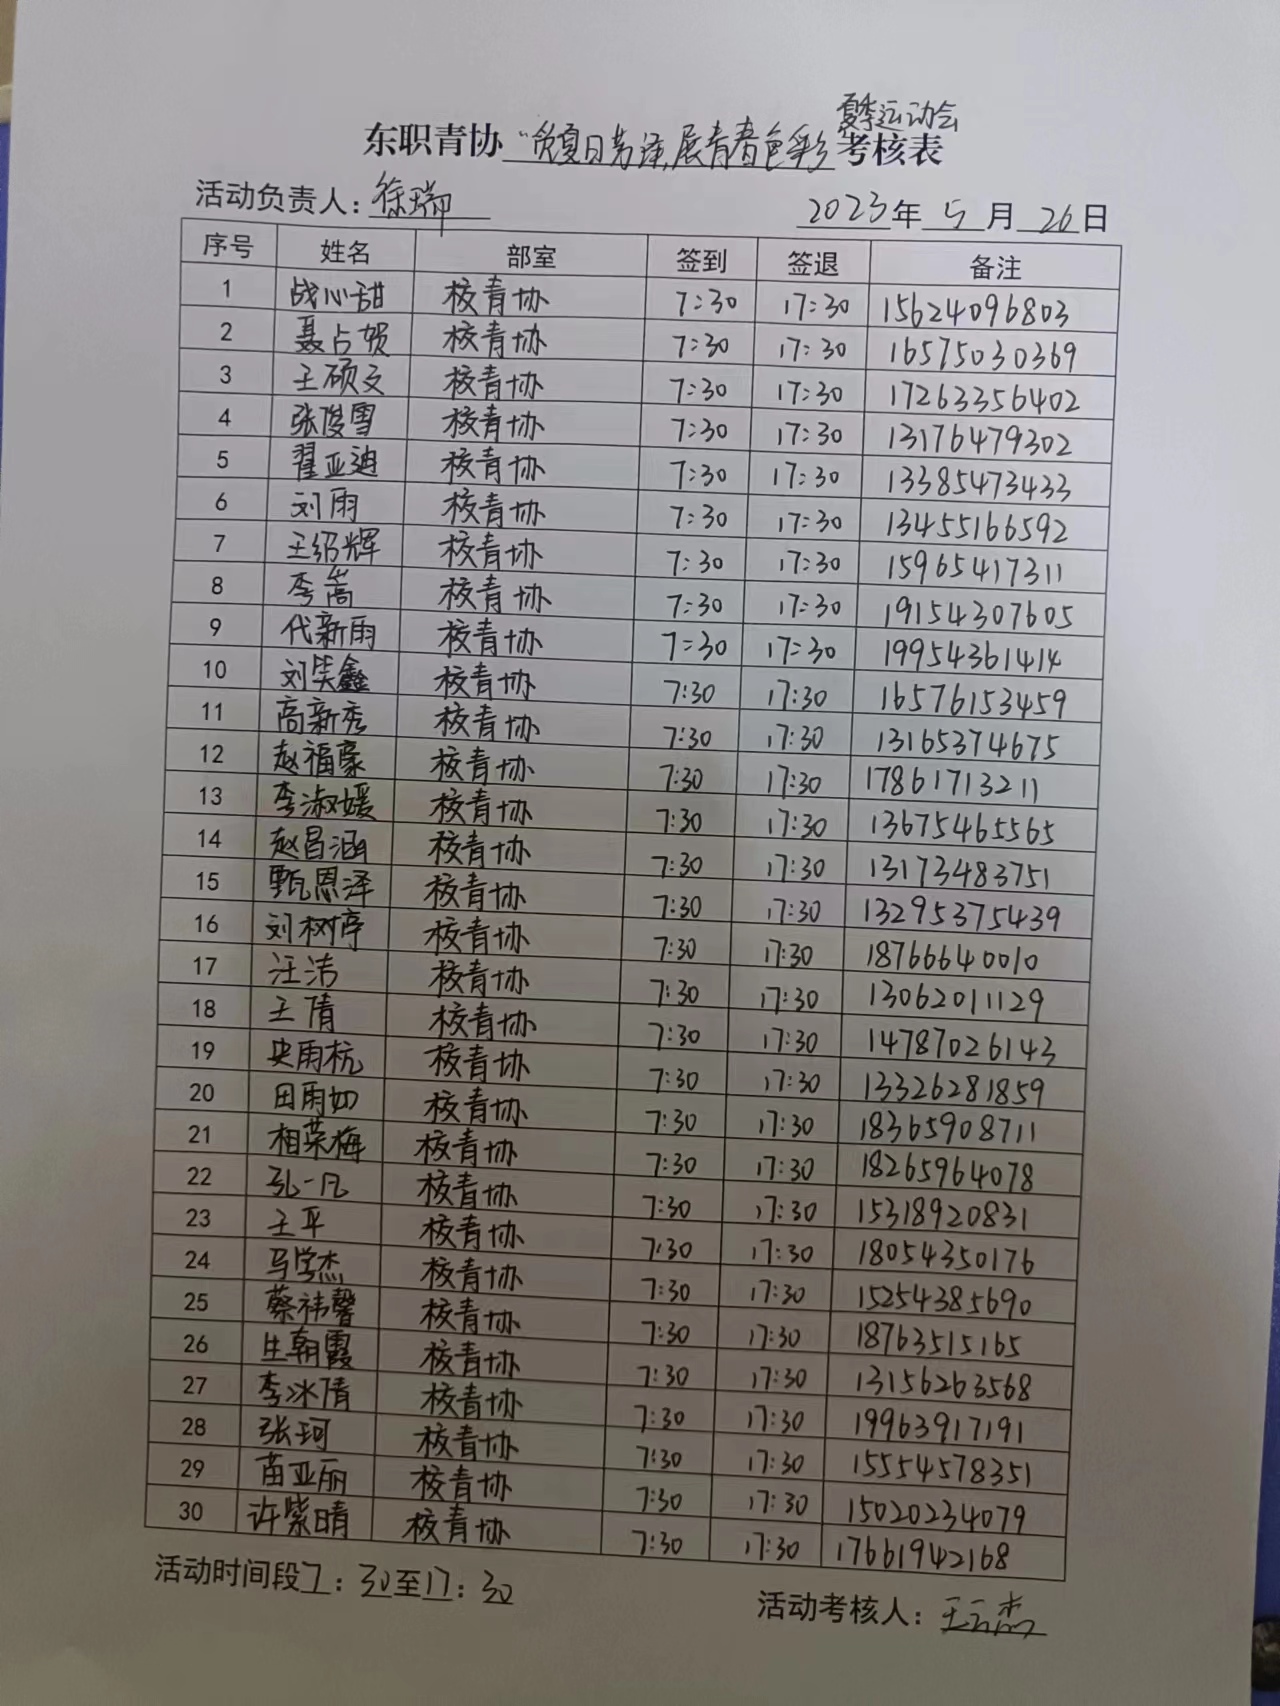 夏季运动会
东职青协"负夏日芳泽,展青春色彩 考核表
活动负责人:徐瑞
2023年 5月 26日
序号 姓名 部室 签到 签退 备注
1 战心甜 校青协 7:30 17:30 15624096803
2 聂占贺 校青协 7:30 17:30 16575030369
3 王硕文 校青协 7:30 17:30 17263356402
4 张俊雪 校青协 7:30 17:30 13176479302
5 翟亚迪 校青协 7:30 17:30 13385473433
6 刘雨 校青协 7:30 17:30 13455166592
7 王绍辉 校青协 7:30 17:30 15965417311
8 李嵩 校青协 7:30 17:30 19154307605
9 代新雨 校青协 7:30 17:30 19954361414
10 刘笑鑫 校青协 7:30 17:30 16576153459
11 高新秀 校青协 7:30 17:30 13165374675
12 赵福豪 校青协 7:30 17:30 17861713211
13 李淑媛 校青协 7:30 17:30 13675465565
14 赵昌涵 校青协 7:30 17:30 13173483751
15 甄恩泽 校青协 7:30 17:30 13295375439
16 刘树亭 校青协 7:30 17:30 18766640010
17 汪洁 校青协 7:30 17:30 13062011129
18 王倩 校青协 7:30 17:30 14787026143
19 史雨杭 校青协 7:30 17:30 13326281859
20 田雨如 校青协 7:30 17:30 18365908711
21 相荣梅 校青协 7:30 17:30 18265964078
22 孔一凡 校青协 7:30 17:30 15318920831
23 王平 校青协 7:30 17:30 18054350176
24 马学杰 校青协 7:30 17:30 15254385690
25 蔡祎馨 校青协 7:30 17:30 18763515165
26 生朝霞 校青协 7:30 17:30 13156263568
27 李冰倩 校青协 7:30 17:30 19963917191
28 张珂 校青协 7:30 17:30 15554578351
29 苗亚丽 校青协 7:30 17:30 15020234079
30 许紫晴 校青协 7:30 17:30 17661942168
活动时间段7:30至17:30
活动考核人:王云杰